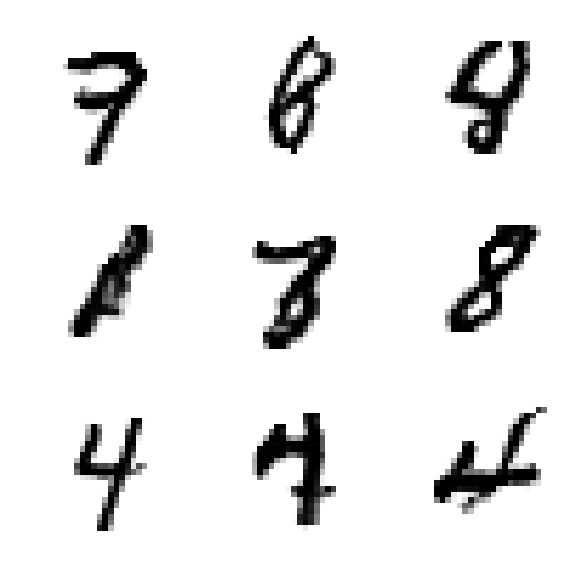 7 8 8
8 8 8
4 7 4